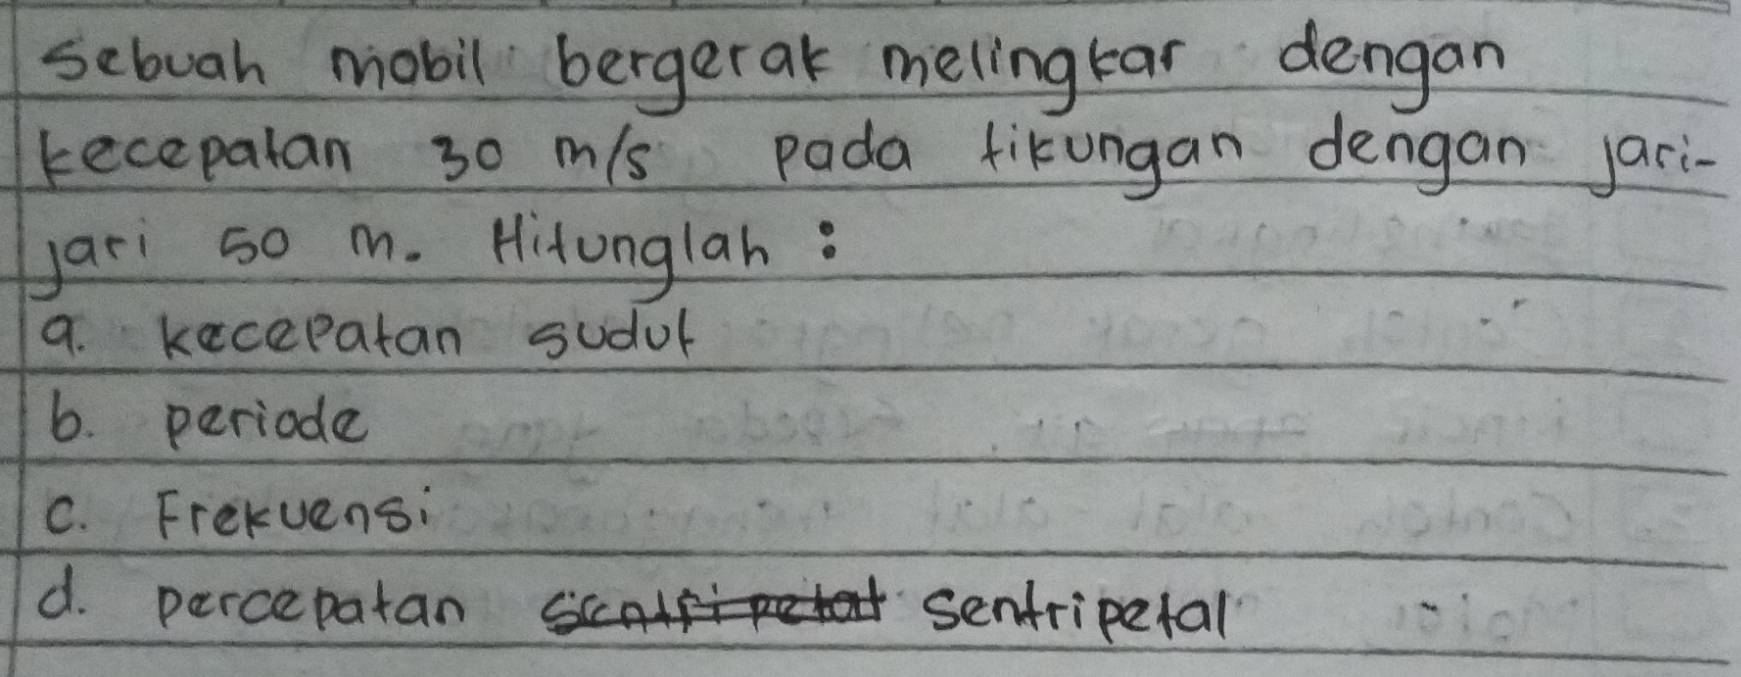 Sebuah mobil bergerak melingkar dengan
kecepatan 30 m/s pada tikungan dengan jari-
jari 50 m. Hitunglah :
a. kecepatan sudut
b. periode
c. Frekuensi
d. percepatan sentripetal